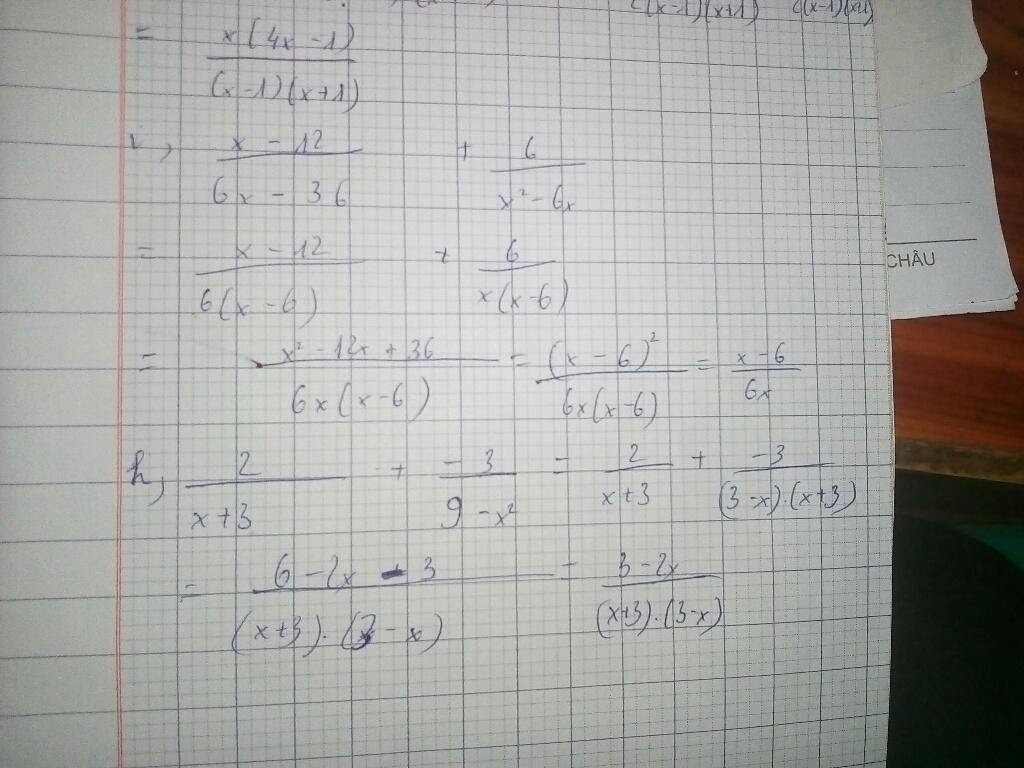 (x-1)(x+1) (x-1)(x+1)
= x(4x-1) / (x-1)(x+1)
i, x-12 / 6x-36 + 6 / x²-6x
= x-12 / 6(x-6) + 6 / x(x-6)
CHÂU
= x²-12x+36 / 6x(x-6) = (x-6)² / 6x(x-6) = x-6 / 6x
h, 2 / x+3 + -3 / 9-x² = 2 / x+3 + -3 / (3-x).(x+3)
= 6-2x-3 / (x+3).(3-x) = 3-2x / (x+3).(3-x)